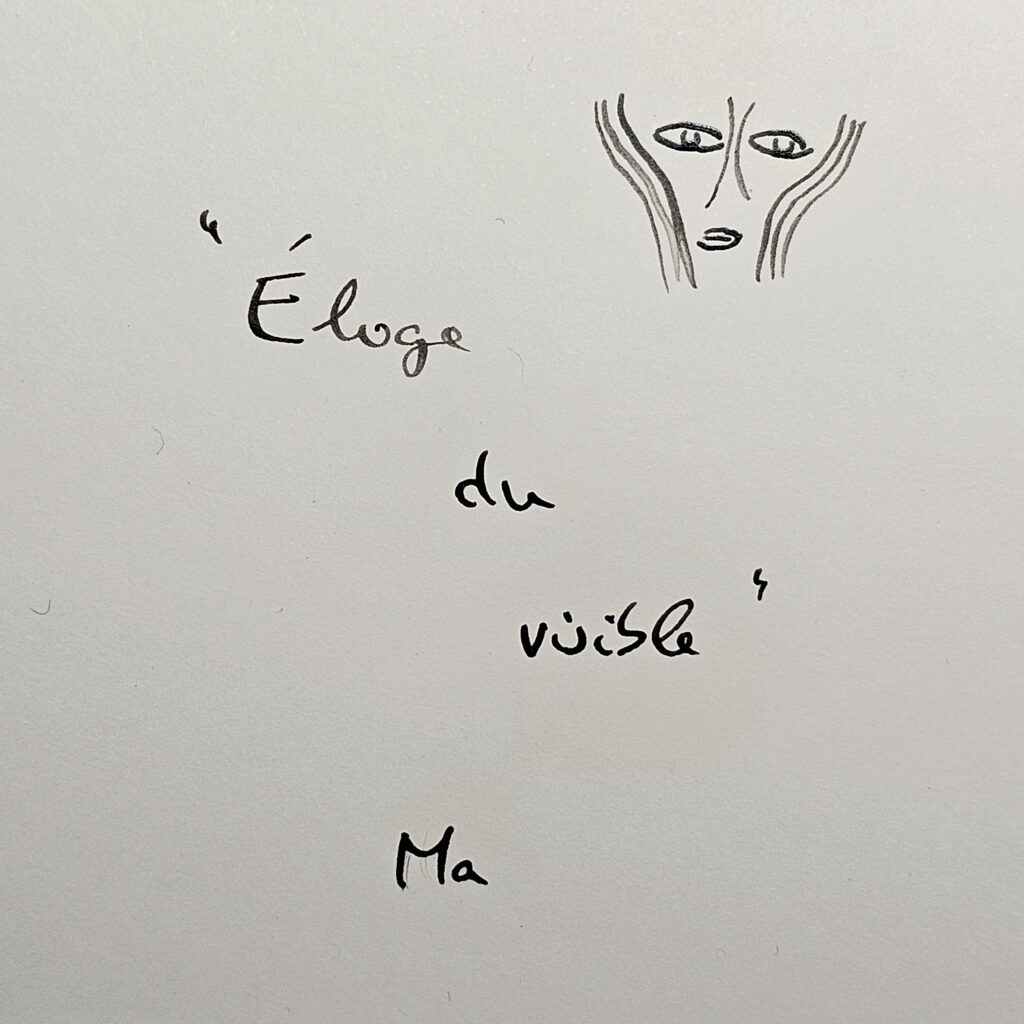 "Éloge
du
visible"
Ma